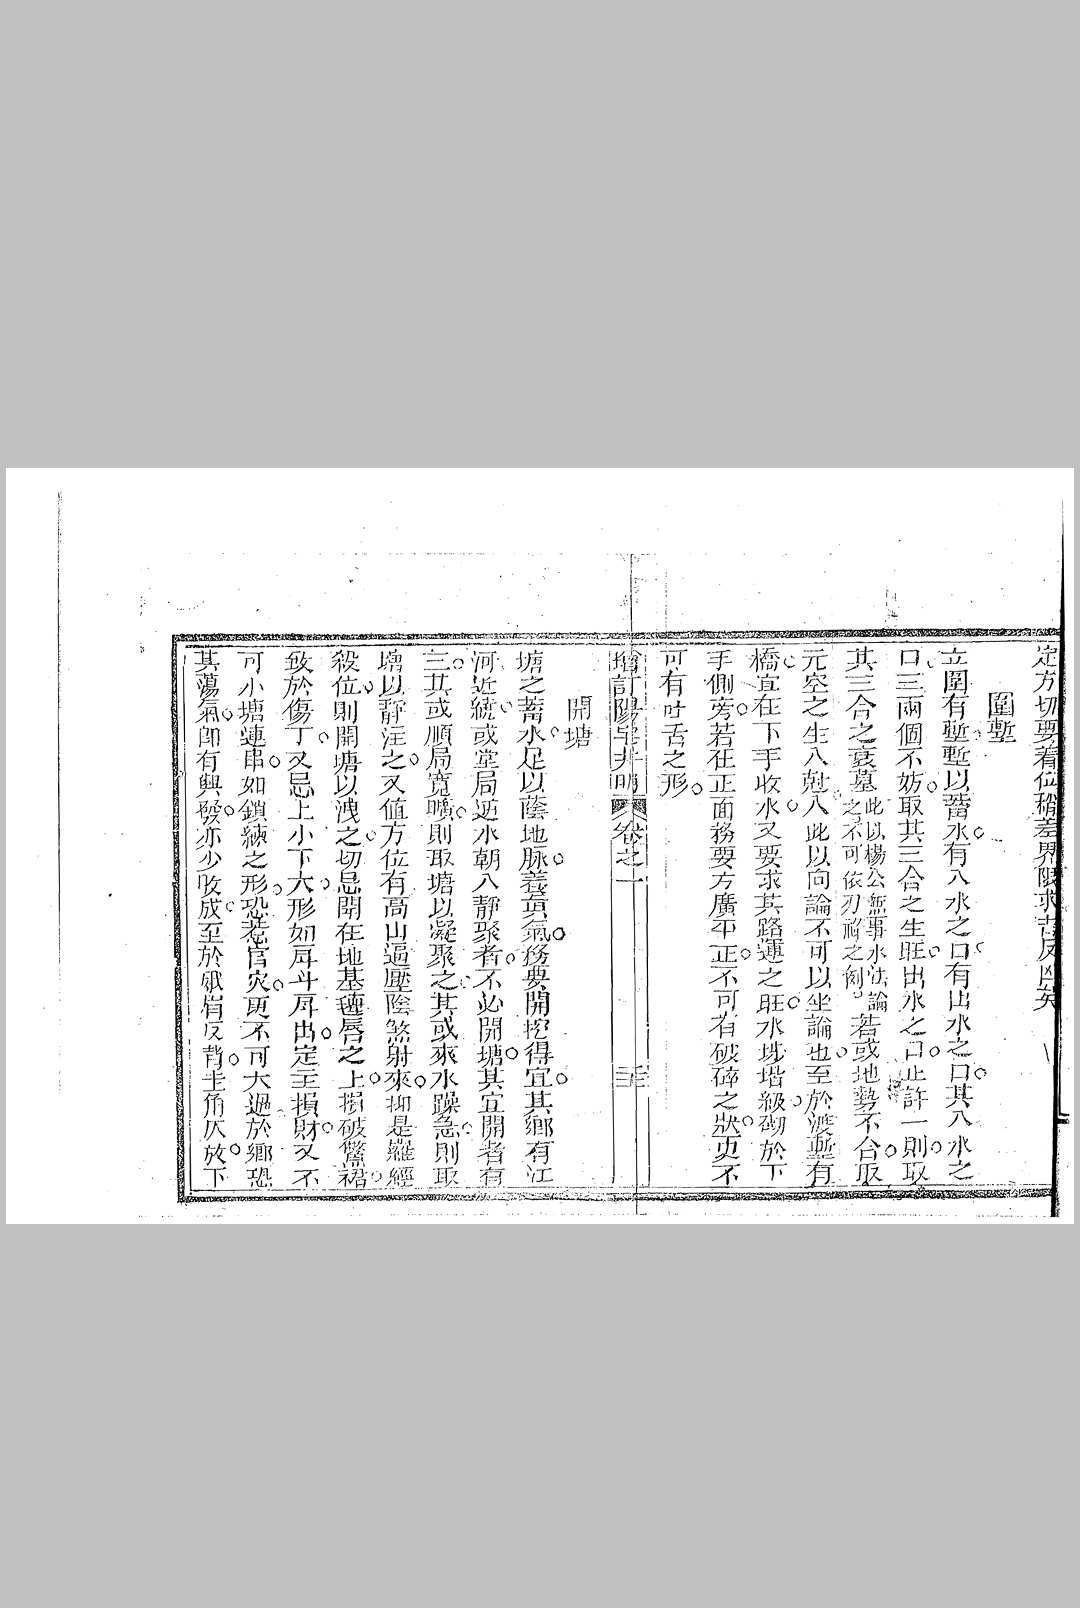 定方切要着位稍差界限求吉反凶矣
圍塹
立圍有塹塹以蓄水有入水之口有出水之口其入水之
口三兩個不妨取其三合之生旺出水之口止許一則取
其三合之衰墓此以楊公無事水法論之不可依刃稍之例若或地勢不合取
元空之生入尅入此以向論不可以坐論也至於渡塹有
橋宜在下手收水又要求其路運之旺水埗堦級砌於下
手側旁若在正面務要方廣平正不可有破碎之狀更不
可有吐舌之形
增訂陽宅井明 卷之一 三十
開塘
塘之蓄水足以蔭地脉養真氣務要開挖得宜其鄉有江
河近繞或堂局逆水朝入靜聚者不必開塘其宜開者有
三其或順局寬曠則取塘以凝聚之其或來水躁急則取
塘以靜注之又值方位有高山逼壓陰煞射來抑是羅經
殺位則開塘以洩之切忌開在地基氊唇之上損破驚裙
致於傷丁又忌上小下大形如戽斗戽出定主損財又不
可小塘連串如鎖練之形恐惹官灾更不可大過於鄉恐
其蕩氣即有興發亦少收成至於峨眉反背圭角仄放下